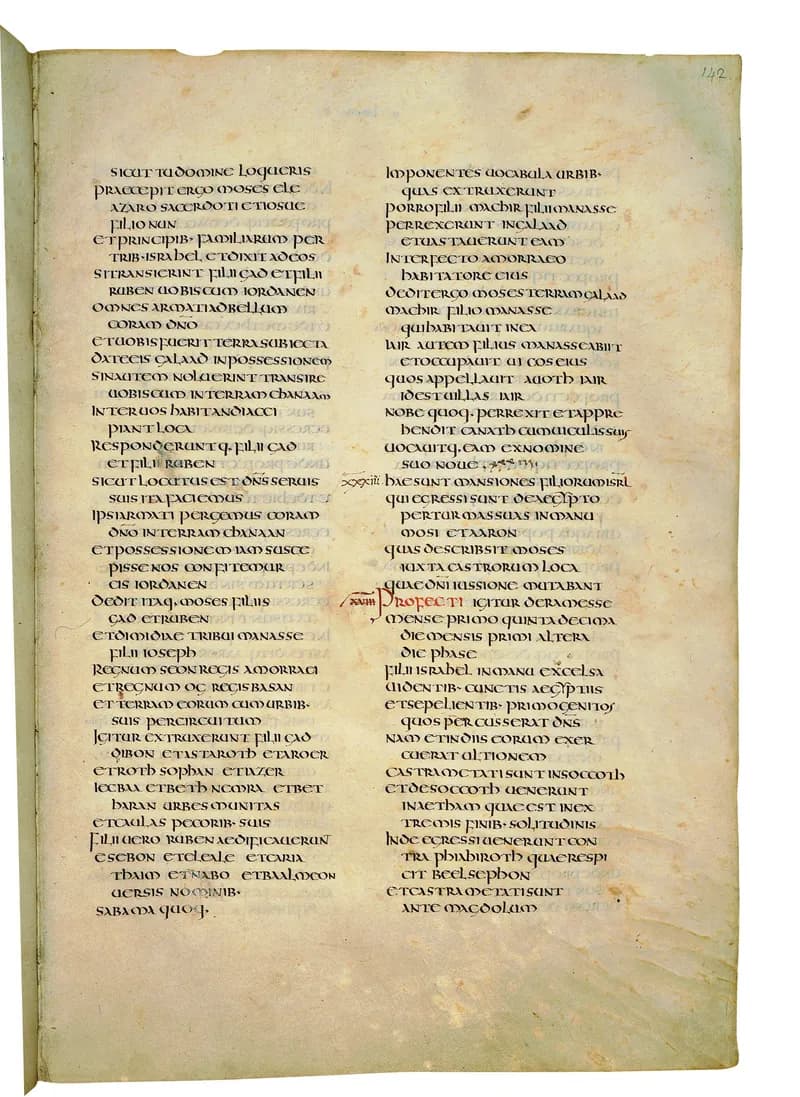 142
SICUT TU DOMINE LOQUERIS
PRAECEPIT ERGO MOSES ELE
AZARO SACERDOTI ET IOSUE
FILIO NUN
ET PRINCIPIB· FAMILIARUM PER
TRIB· ISRAHEL ET DIXIT AD EOS
SI TRANSIERINT FILII GAD ET FILII
RUBEN UOBISCUM IORDANEN
OMNES ARMATI AD BELLUM
CORAM DN̄O
ET UOBIS FUERIT TERRA SUBIECTA
DATE EIS GALAAD IN POSSESSIONEM
SIN AUTEM NOLUERINT TRANSIRE
UOBISCUM IN TERRAM CHANAAN
INTER UOS HABITANDI ACCI
PIANT LOCA
RESPONDERUNTQ· FILII GAD
ET FILII RUBEN
SICUT LOCUTUS EST DN̄S SERUIS
SUIS ITA FACIEMUS
IPSI ARMATI PERGEMUS CORAM
DN̄O IN TERRAM CHANAAN
ET POSSESSIONEM IAM SUSCE
PISSE NOS CONFITEMUR
CIS IORDANEN
DEDIT ITAQ· MOSES FILIIS
GAD ET RUBEN
ET DIMIDIAE TRIBUI MANASSE
FILII IOSEPH
REGNUM SEON REGIS AMORRAEI
ET REGNUM OG REGIS BASAN
ET TERRAM EORUM CUM URBIB·
SUIS PER CIRCUITUM
IGITUR EXTRUXERUNT FILII GAD
DIBON ET ASTAROTH ET AROER
ET ROTH SOPHAN ET IAZER
IECBAA ET BETH NEMRA ET BET
HARAN URBES MUNITAS
ET CAULAS PECORIB· SUIS
FILII UERO RUBEN AEDIFICAUERUNT
ESEBON ET ELEALE ET CARIA
THAIM ET NABO ET BAALMEON
UERSIS NOMINIB·
SABAMA QUOQ·
IMPONENTES UOCABULA URBIB·
QUAS EXTRUXERUNT
PORRO FILII MACHIR FILII MANASSE
PERREXERUNT IN GALAAD
ET UASTAUERUNT EAM
INTERFECTO AMORRAEO
HABITATORE EIUS
DEDIT ERGO MOSES TERRAM GALAAD
MACHIR FILIO MANASSE
QUI HABITAUIT IN EA
IAIR AUTEM FILIUS MANASSE ABIIT
ET OCCUPAUIT UICOS EIUS
QUOS APPELLAUIT AUOTH IAIR
ID EST UILLAS IAIR
NOBE QUOQ· PERREXIT ET APPRE
HENDIT CANATH CUM UICULIS SUIS
UOCAUITQ· EAM EX NOMINE
SUO NOUE
XXXIII HAE SUNT MANSIONES FILIORUM ISRL̄
QUI EGRESSI SUNT DE AEGYPTO
PER TURMAS SUAS IN MANU
MOSI ET AARON
QUAS DESCRIBSIT MOSES
IUXTA CASTRORUM LOCA
QUAE DN̄I IUSSIONE MUTABANT
PROFECTI IGITUR DE RAMESSE
MENSE PRIMO QUINTA DECIMA
DIE MENSIS PRIMI ALTERA
DIE PHASE
FILII ISRAHEL IN MANU EXCELSA
UIDENTIB· CUNCTIS AEGYPTIIS
ET SEPELIENTIB· PRIMOGENITOS
QUOS PERCUSSERAT DN̄S
NAM ET IN DIIS EORUM EXER
CUERAT ULTIONEM
CASTRAMETATI SUNT IN SOCCOTH
ET DE SOCCOTH UENERUNT
IN AETHAM QUAE EST IN EX
TREMIS FINIB· SOLITUDINIS
INDE EGRESSI UENERUNT CON
TRA PHIAHIROTH QUAE RESPI
CIT BEELSEPHON
ET CASTRAMETATI SUNT
ANTE MAGDOLUM